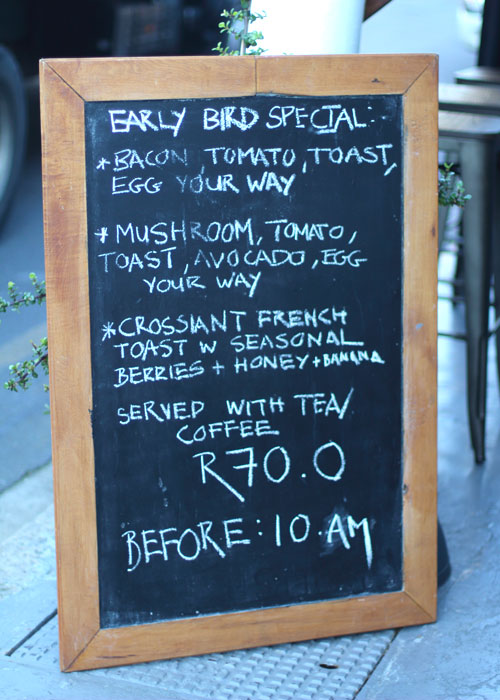 EARLY BIRD SPECIAL:
*BACON TOMATO, TOAST,
EGG YOUR WAY
*MUSHROOM, TOMATO,
TOAST, AVOCADO, EGG
YOUR WAY
*CROSSIANT FRENCH
TOAST W SEASONAL
BERRIES + HONEY + BANANA
SERVED WITH TEA/
COFFEE
R70.0
BEFORE: 10.AM